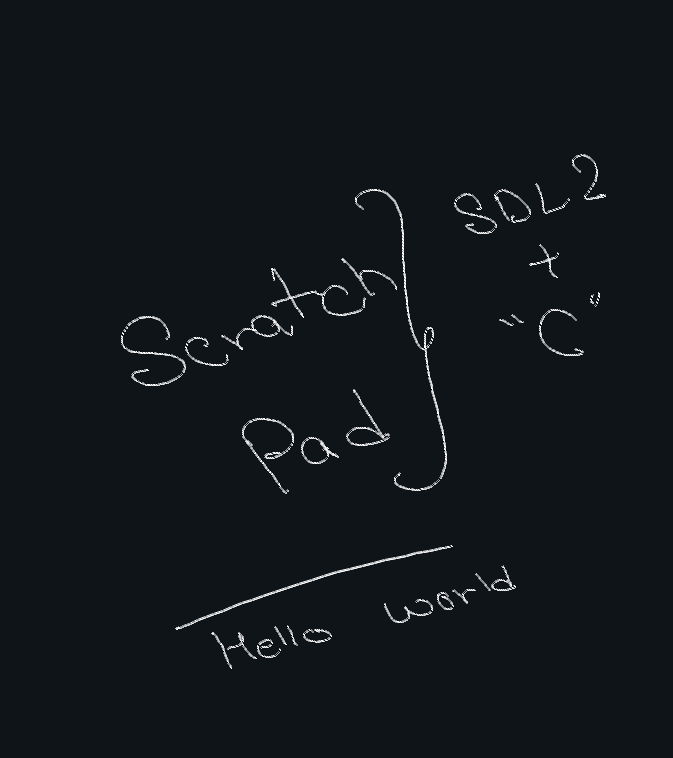 Scratch
Pad
SDL2
+
"C"
Hello World